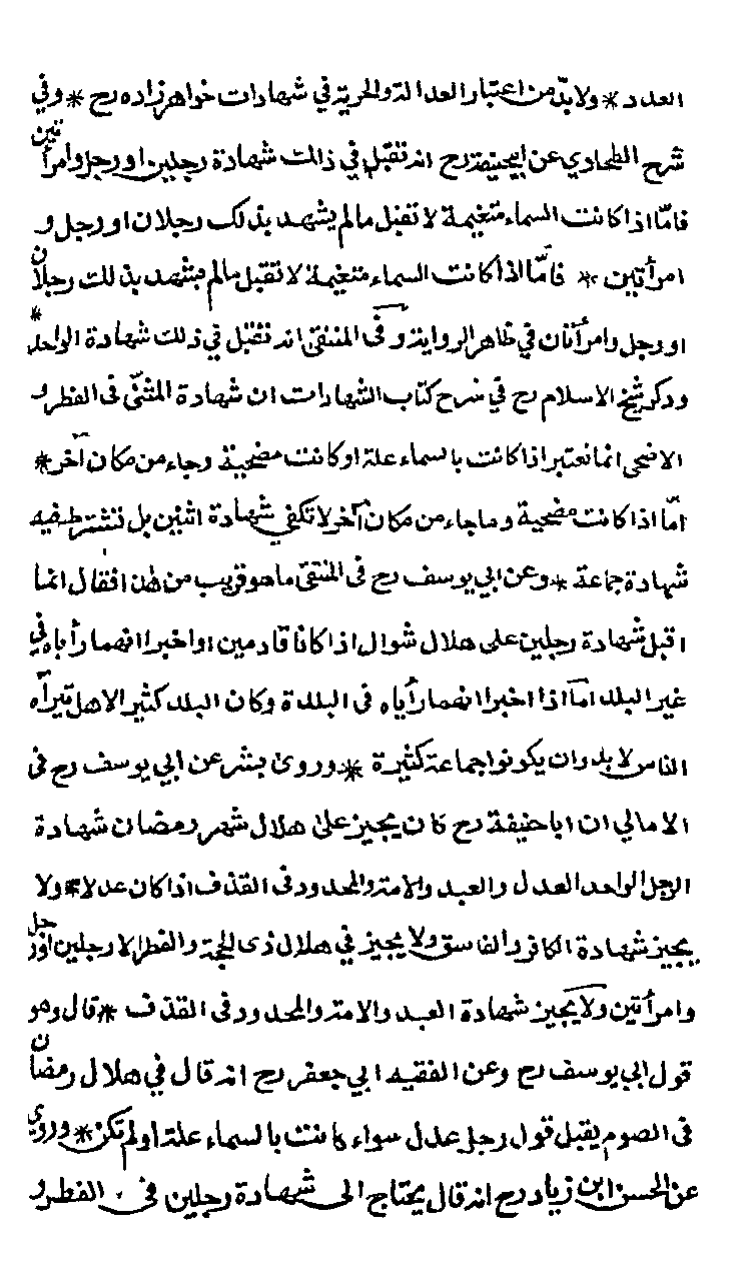 العدد * ولا بدّ من اعتبار العدالة والحرية في شهادات خواهر زاده رح * وفي
شرح الطحاوي عن ابيحنيفة رح انه تقبل في ذالك شهادة رجلين او رجل وامرأتين
فامّا اذا كانت السماء متغيمة لا تقبل مالم يشهد بذلك رجلان او رجل و
امرأتين * فامّا اذا كانت السماء متغيمة لا تقبل مالم يشهد بذلك رجلان
او رجل وامرأتان في ظاهر الرواية وفى المنتقى انه تقبل في ذلك شهادة الواحد *
وذكر شيخ الاسلام رح في شرح كتاب الشهادات ان شهادة المثنّى فى الفطر و
الاضحى انما تعتبر اذا كانت بالسماء علة او كانت مضحية وجاء من مكان آخر *
امّا اذا كانت مضحية وما جاء من مكان آخر لا تكفي شهادة اثنين بل تشترط فيه
شهادة جماعة * وعن ابي يوسف رح فى المنتقى ما هو قريب من هذا فقال انما
اقبل شهادة رجلين على هلال شوال اذا كانا قادمين او اخبرا انهما رأياه في
غير البلد امّا اذا اخبرا انهما رأياه فى البلدة وكان البلد كثير الاهل تيرآه
الناس لا بد وان يكونوا جماعة كثيرة * وروى بشر عن ابي يوسف رح فى
الامالي ان ابا حنيفة رح كان يجيز على هلال شهر رمضان شهادة
الرجل الواحد العدل والعبد والامة والمحدود فى القذف اذا كان عدلا * ولا
يجيز شهادة الكافر والفاسق ولا يجيز في هلال ذى الحجة والفطر الا رجلين او رجل
وامرأتين ولا يجيز شهادة العبد والامة والمحدود فى القذف * قال وهو
قول ابي يوسف رح وعن الفقيه ابي جعفر رح انه قال في هلال رمضان
فى الصوم يقبل قول رجل عدل سواء كانت بالسماء علة او لم تكن * وروي
عن الحسن ابن زياد رح انه قال يحتاج الى شهادة رجلين فى الفطر و